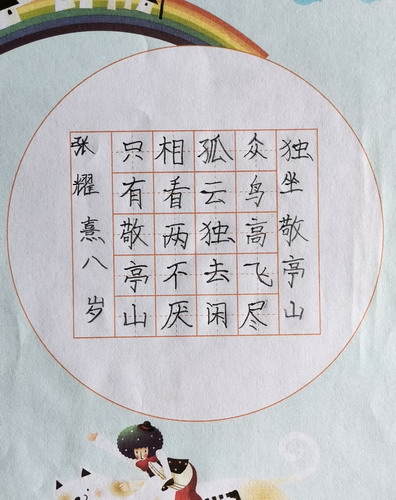 独坐敬亭山
众鸟高飞尽
孤云独去闲
相看两不厌
只有敬亭山
张耀熹八岁